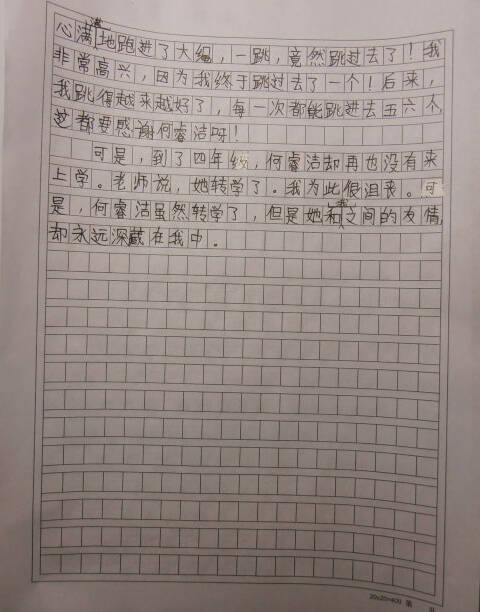 心满满地跑进了大绳，一跳，竟然跳过去了！我
非常高兴，因为我终于跳过去了一个！后来，
我跳得越来越好了，每一次都能跳进去五六个，
这都要感谢何睿洁呀！
可是，到了四年级，何睿洁却再也没有来
上学。老师说，她转学了。我为此很沮丧。可
是，何睿洁虽然转学了，但是她和我之间的友情，
却永远深藏在我中。
20x20=400 第